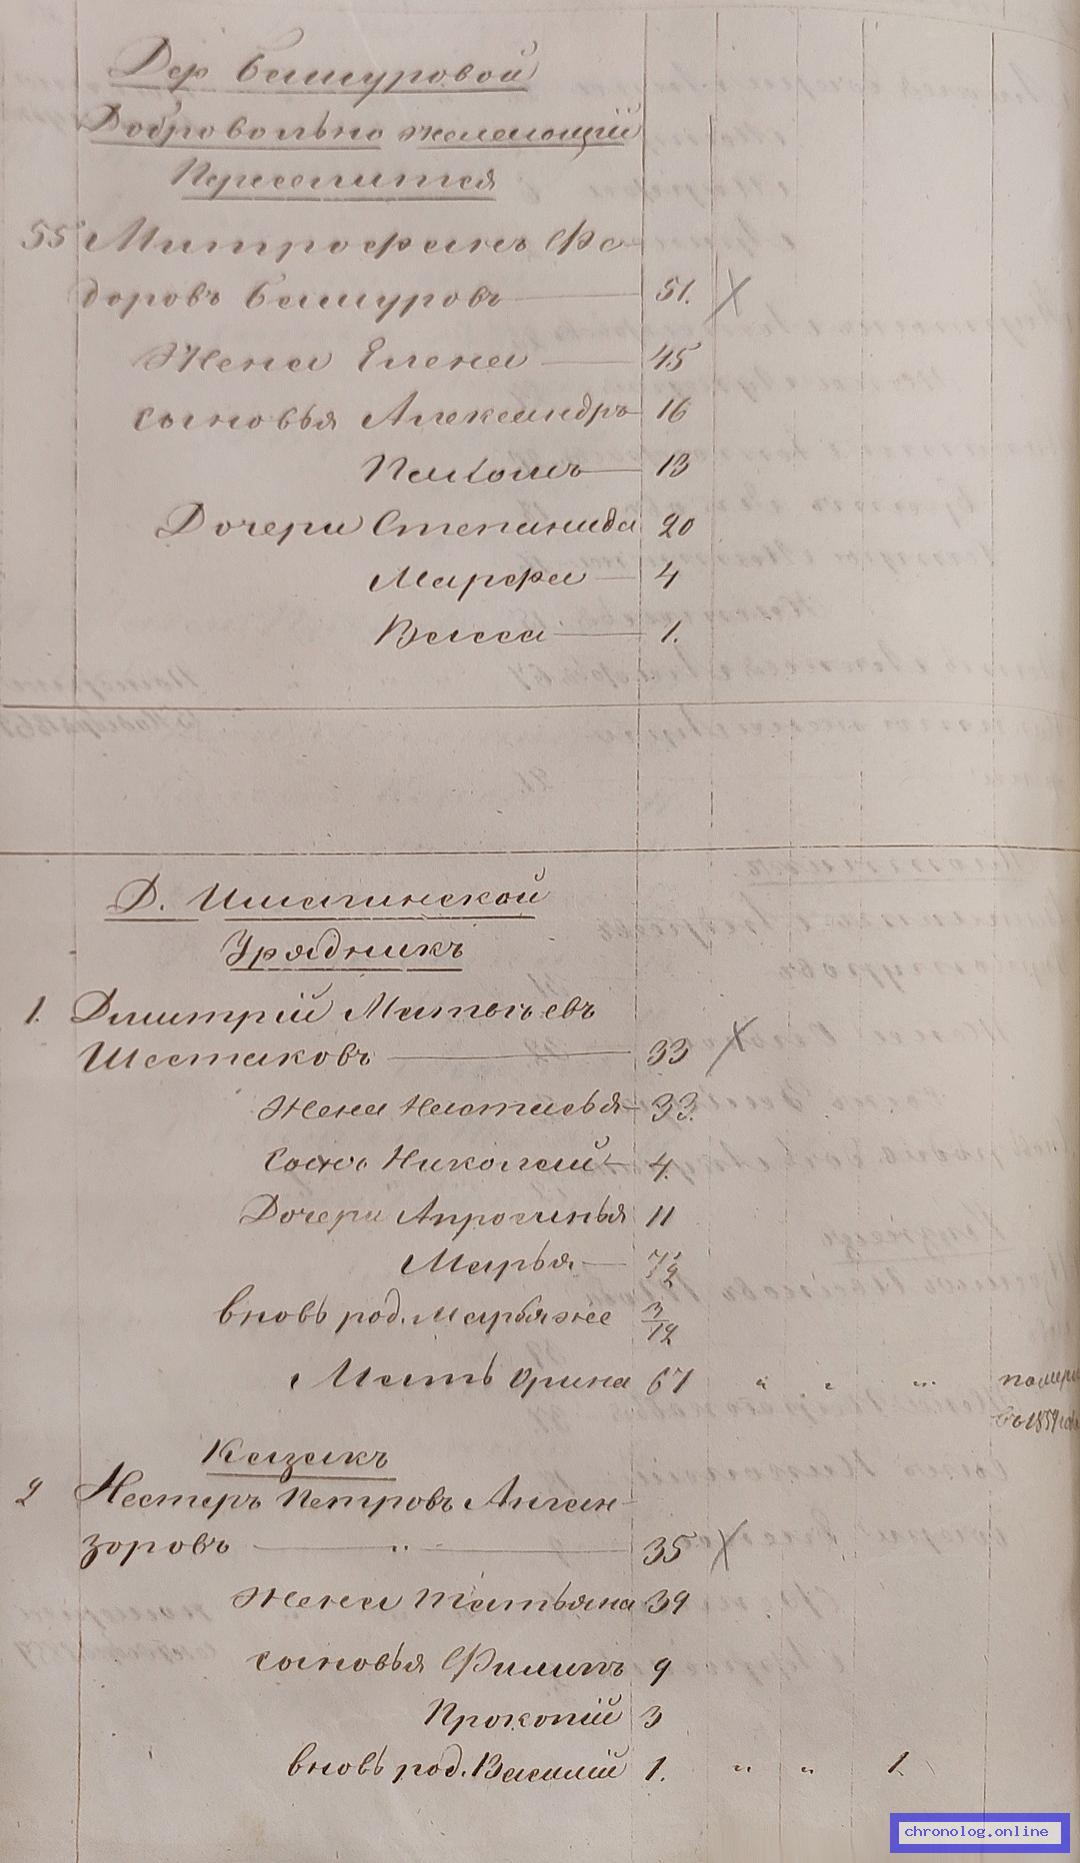 Дер Башуровой
Добровольно желающій
Переселится
55 Митрофанъ Фе-
доровъ Башуровъ 51.
Жена Елена 45
сыновья Александръ 16
Пахомъ 13
Дочери Степанида 20
Марфа 4
Васса 1.
Д. Ишагинской
Урядникъ
1. Дмитрій Матвѣевъ
Шестаковъ 33
Жена Настасья 33.
Сынъ Николай 4.
Дочери Апросинья 11
Марья 7½
вновь род. Марья же 3/12
Мать Орина 67 " " " померла
въ 1859 год
Казакъ
2 Нестеръ Петровъ Анган-
зоровъ " 35
Жена Татьяна 39
сыновья Филипъ 9
Прокопій 3
вновь род. Василій 1. " " 1
chronolog.online